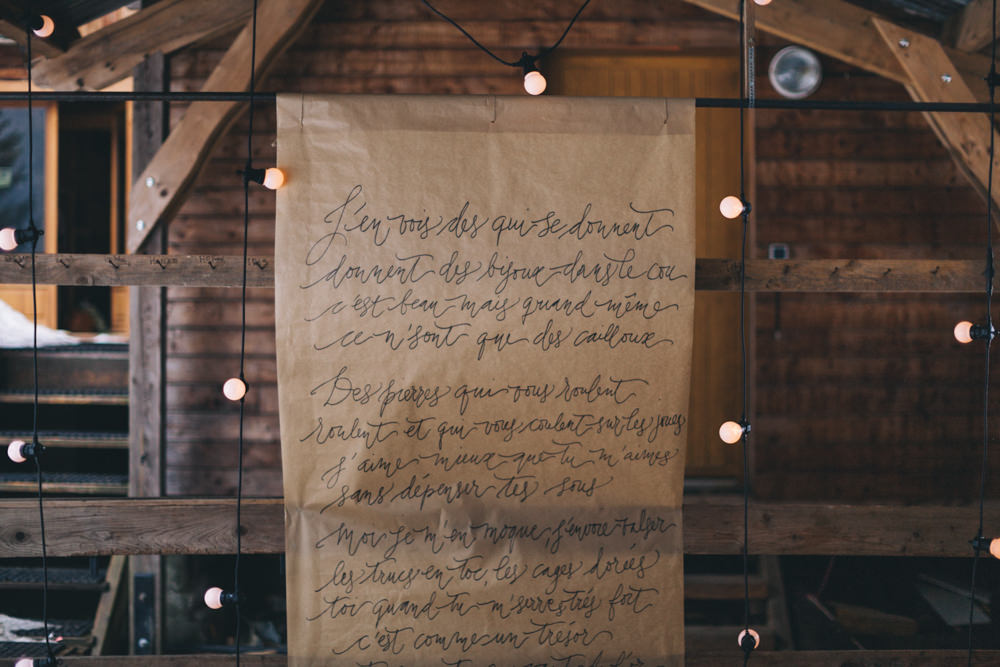 J'en vois des qui se donnent
donnent des bijoux dans le cou
c'est beau mais quand même
ce n'sont que des cailloux
Des pierres qui vous roulent
roulent et qui vous coulent sur les joues
j'aime mieux que tu m'aimes
sans dépenser tes sous
Moi je m'en moque, j'envoie valser
les trucs en toc, les cages dorées
toi quand tu m'serres très fort
c'est comme un trésor